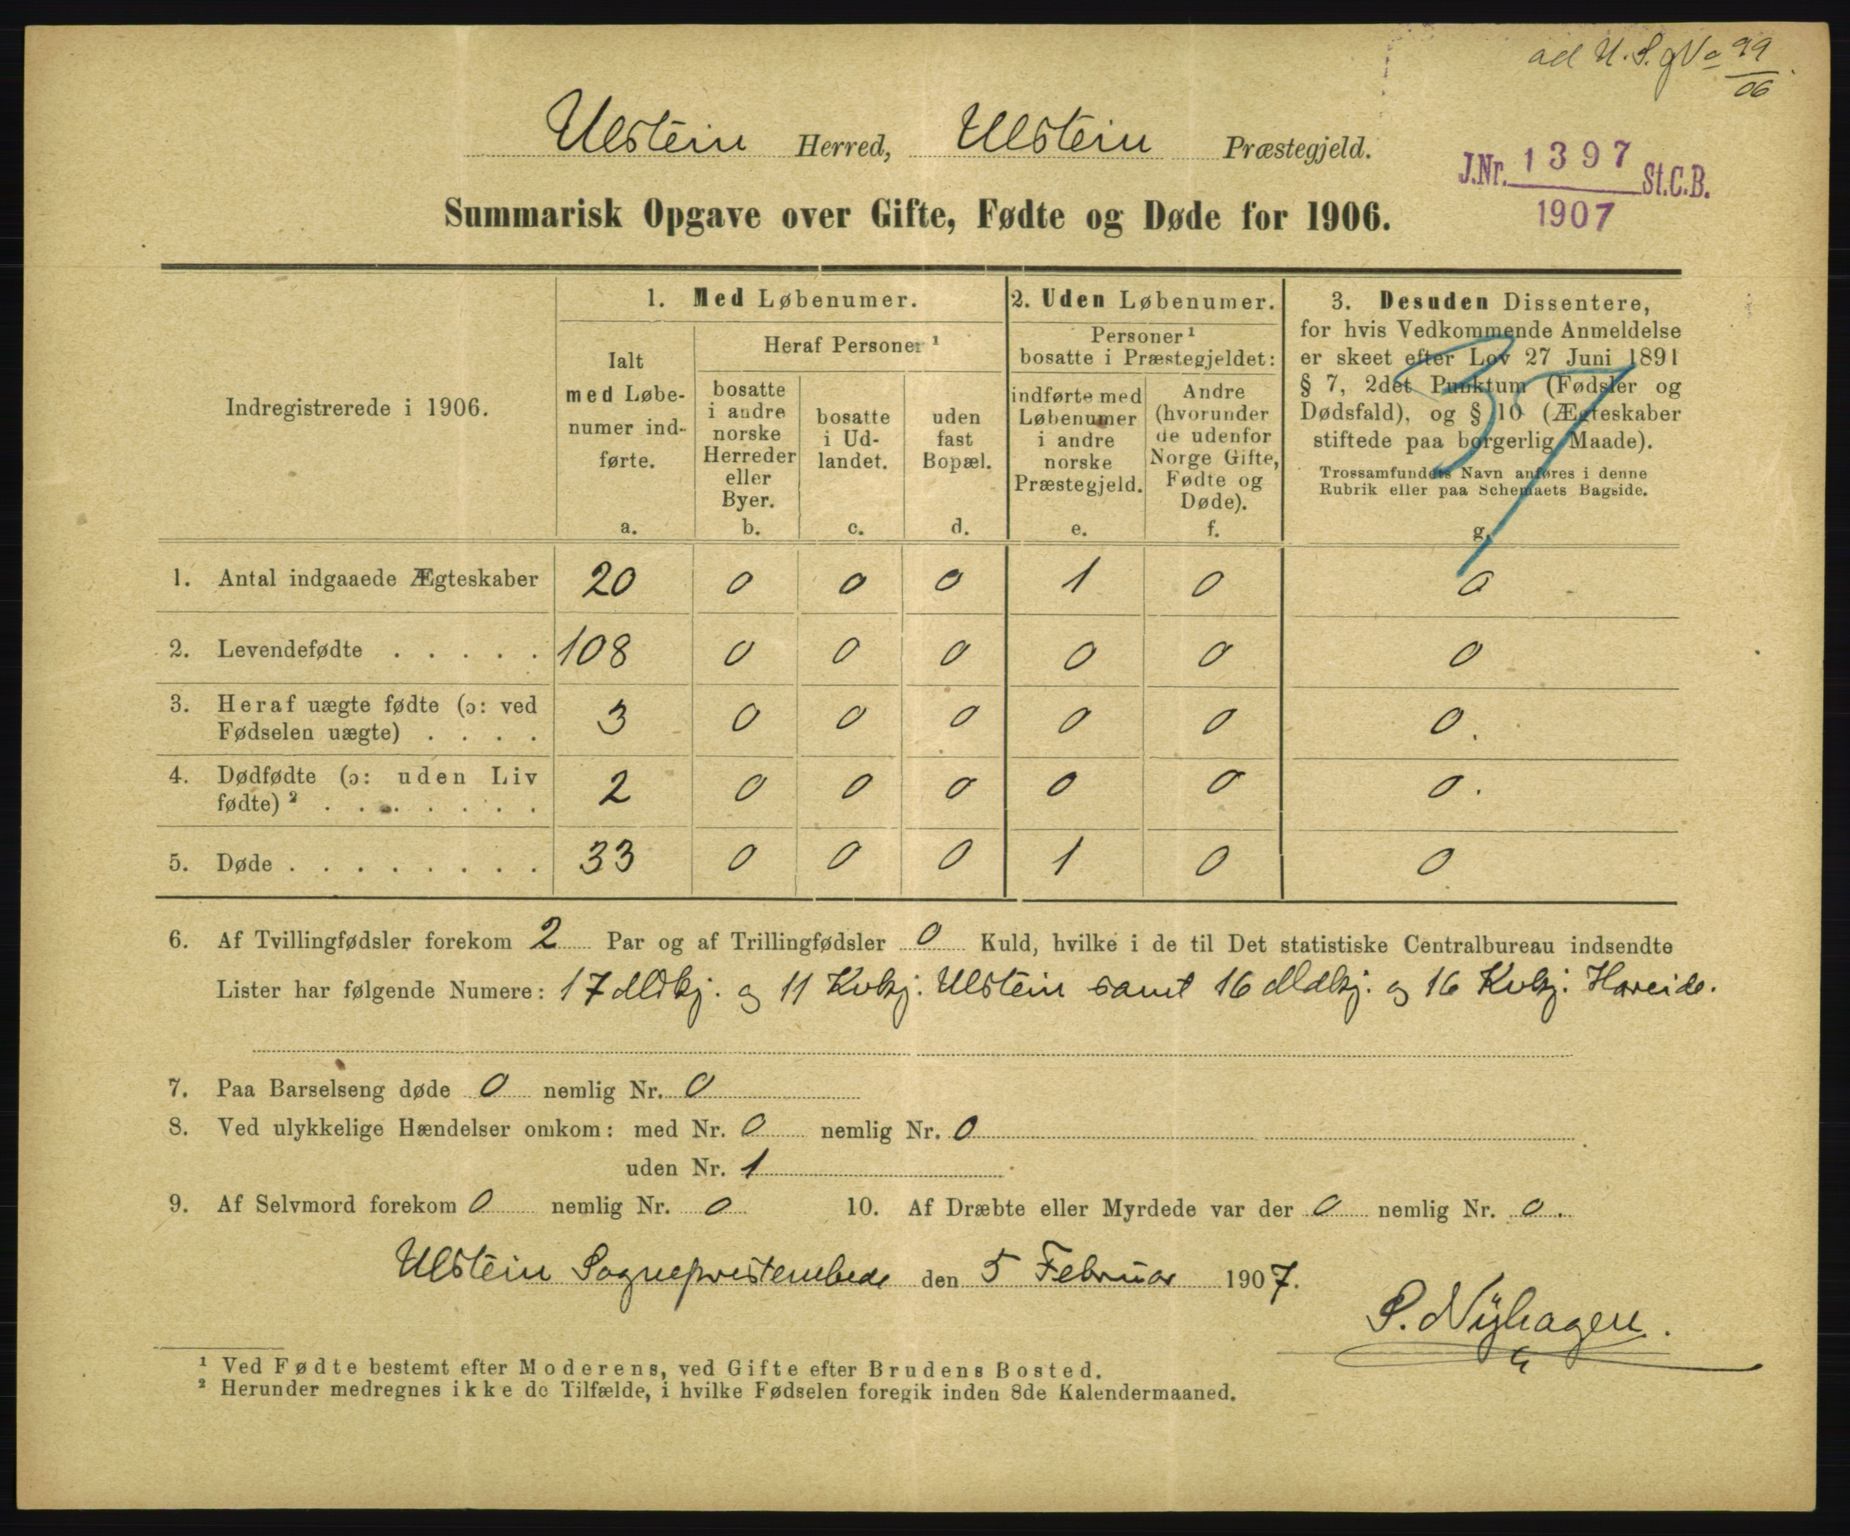 ad U. S. g No 99/06
Ulstein Herred, Ulstein Præstegjeld.
J.Nr. 1397 St.C.B.
1907
Summarisk Opgave over Gifte, Fødte og Døde for 1906.
Indregistrerede i 1906.
1. Med Løbenumer.
Ialt
med Løbe-
numer ind-
førte.
a.
Heraf Personer ¹
bosatte
i andre
norske
Herreder
eller
Byer.
b.
bosatte
i Ud-
landet.
c.
uden
fast
Bopæl.
d.
2. Uden Løbenumer.
Personer ¹
bosatte i Præstegjeldet:
indførte med
Løbenumer
i andre
norske
Præstegjeld.
e.
Andre
(hvorunder
de udenfor
Norge Gifte,
Fødte og
Døde).
f.
3. Desuden Dissentere,
for hvis Vedkommende Anmeldelse
er skeet efter Lov 27 Juni 1891
§ 7, 2det Punktum (Fødsler og
Dødsfald), og § 10 (Ægteskaber
stiftede paa borgerlig Maade).
Trossamfundets Navn anføres i denne
Rubrik eller paa Schemaets Bagside.
g.
37
1. Antal indgaaede Ægteskaber 20 0 0 0 1 0 0
2. Levendefødte . . . . . 108 0 0 0 0 0 0
3. Heraf uægte fødte (ɔ: ved
Fødselen uægte) . . . . 3 0 0 0 0 0 0.
4. Dødfødte (ɔ: uden Liv
fødte) ² . . . . . . . 2 0 0 0 0 0 0.
5. Døde . . . . . . . . 33 0 0 0 1 0 0
6. Af Tvillingfødsler forekom 2 Par og af Trillingfødsler 0 Kuld, hvilke i de til Det statistiske Centralbureau indsendte
Lister har følgende Numere: 17 Mdkj. og 11 Kvkj. Ulstein samt 16 Mdkj. og 16 Kvkj. Hareide.
7. Paa Barselseng døde 0 nemlig Nr. 0
8. Ved ulykkelige Hændelser omkom: med Nr. 0 nemlig Nr. 0
uden Nr. 1
9. Af Selvmord forekom 0 nemlig Nr. 0 10. Af Dræbte eller Myrdede var der 0 nemlig Nr. 0.
Ulstein Sogneprestembede den 5 Februar 1907.
S. Nyhagen.
¹ Ved Fødte bestemt efter Moderens, ved Gifte efter Brudens Bosted.
² Herunder medregnes ikke de Tilfælde, i hvilke Fødselen foregik inden 8de Kalendermaaned.